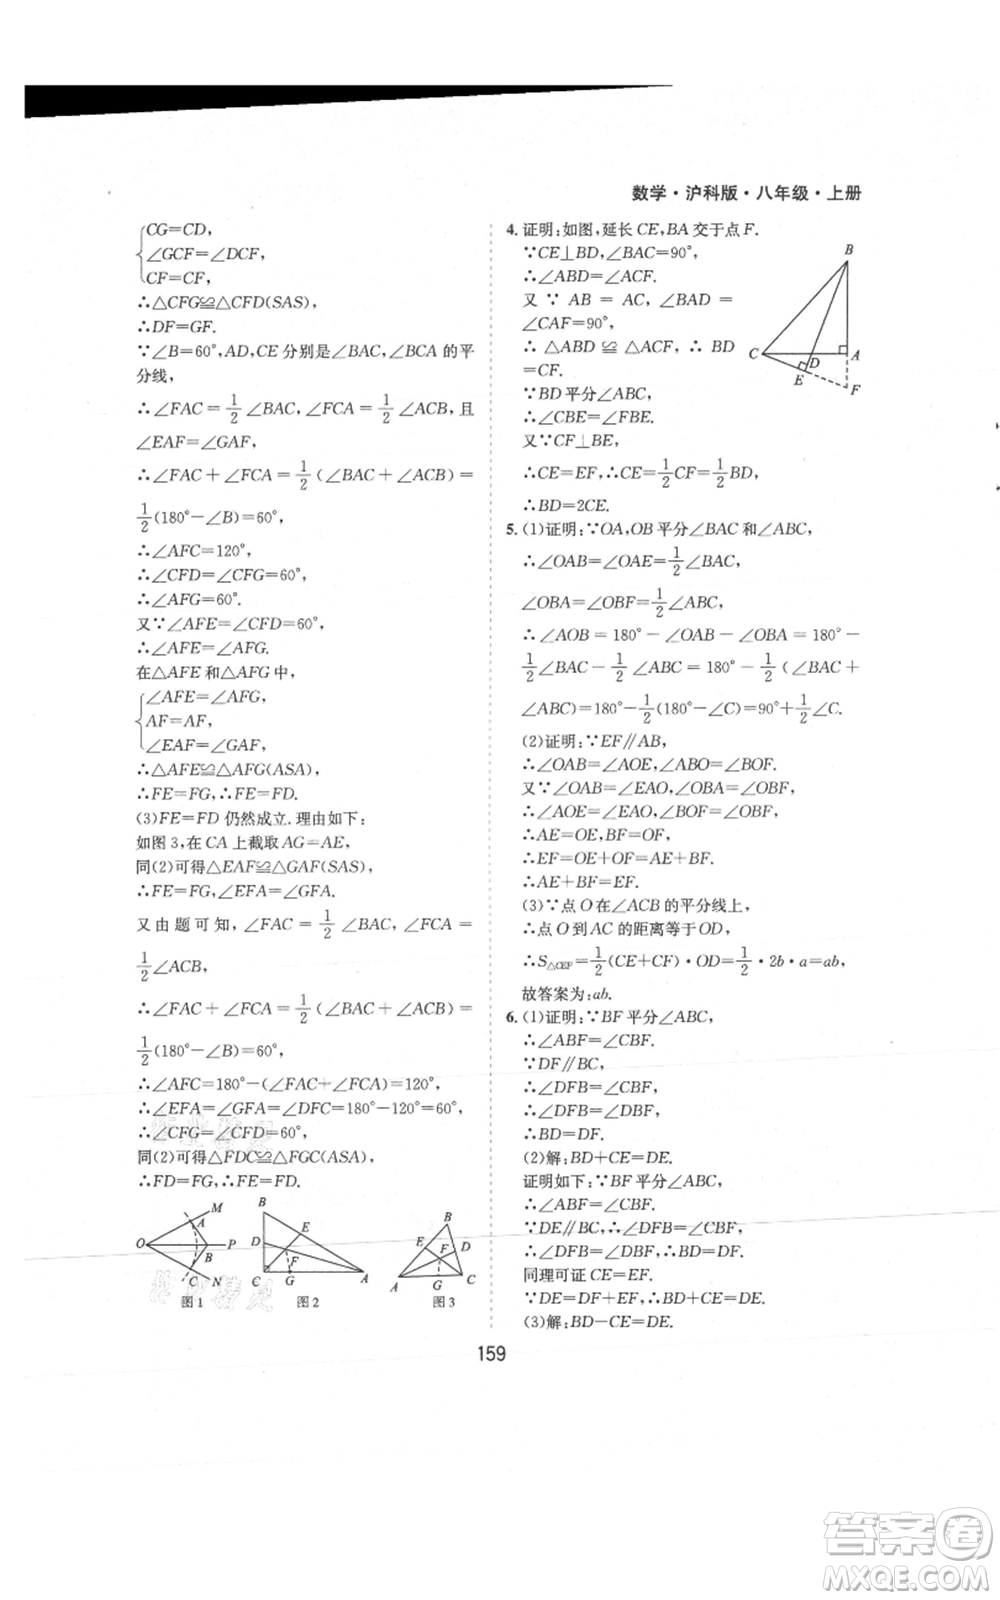 数学·沪科版·八年级·上册
CG=CD,
∠GCF=∠DCF,
CF=CF,
∴△CFG≌△CFD(SAS),
∴DF=GF.
∵∠B=60°,AD,CE 分别是∠BAC,∠BCA 的平
分线,
∴∠FAC=1/2∠BAC,∠FCA=1/2∠ACB,且
∠EAF=∠GAF,
∴∠FAC+∠FCA=1/2(∠BAC+∠ACB)=
1/2(180°-∠B)=60°,
∴∠AFC=120°,
∴∠CFD=∠CFG=60°,
∴∠AFG=60°.
又∵∠AFE=∠CFD=60°,
∴∠AFE=∠AFG.
在△AFE 和△AFG 中,
∠AFE=∠AFG,
AF=AF,
∠EAF=∠GAF,
∴△AFE≌△AFG(ASA),
∴FE=FG,∴FE=FD.
(3)FE=FD 仍然成立.理由如下:
如图 3,在 CA 上截取 AG=AE,
同(2)可得△EAF≌△GAF(SAS),
∴FE=FG,∠EFA=∠GFA.
又由题可知,∠FAC=1/2∠BAC,∠FCA=
1/2∠ACB,
∴∠FAC+∠FCA=1/2(∠BAC+∠ACB)=
1/2(180°-∠B)=60°,
∴∠AFC=180°-(∠FAC+∠FCA)=120°,
∴∠EFA=∠GFA=∠DFC=180°-120°=60°,
∴∠CFG=∠CFD=60°,
同(2)可得△FDC≌△FGC(ASA),
∴FD=FG,∴FE=FD.
M
A
O
P
B
C
N
图 1
B
E
D
F
C
G
A
图 2
B
E
D
F
A
G
C
图 3
4. 证明:如图,延长 CE,BA 交于点 F.
∵CE⊥BD,∠BAC=90°,
∴∠ABD=∠ACF.
又∵AB=AC,∠BAD=
∠CAF=90°,
∴△ABD≌△ACF,∴BD
=CF.
∵BD 平分∠ABC,
∴∠CBE=∠FBE.
又∵CF⊥BE,
∴CE=EF,∴CE=1/2CF=1/2BD,
∴BD=2CE.
B
C
D
A
E
F
5. (1)证明:∵OA,OB 平分∠BAC 和∠ABC,
∴∠OAB=∠OAE=1/2∠BAC,
∠OBA=∠OBF=1/2∠ABC,
∴∠AOB=180°-∠OAB-∠OBA=180°-
1/2∠BAC-1/2∠BAC=180°-1/2(∠BAC+
∠ABC)=180°-1/2(180°-∠C)=90°+1/2∠C.
(2)证明:∵EF∥AB,
∴∠OAB=∠AOE,∠ABO=∠BOF.
又∵∠OAB=∠EAO,∠OBA=∠OBF,
∴∠AOE=∠EAO,∠BOF=∠OBF,
∴AE=OE,BF=OF,
∴EF=OE+OF=AE+BF,
∴AE+BF=EF.
(3)∵点 O 在∠ACB 的平分线上,
∴点 O 到 AC 的距离等于 OD,
∴S△CEF=1/2(CE+CF)·OD=1/2·2b·a=ab,
故答案为:ab.
6. (1)证明:∵BF 平分∠ABC,
∴∠ABF=∠CBF.
∵DF∥BC,
∴∠DFB=∠CBF,
∴∠DFB=∠DBF,
∴BD=DF.
(2)解:BD+CE=DE.
证明如下:∵BF 平分∠ABC,
∴∠ABF=∠CBF,
∵DE∥BC,∴∠DFB=∠CBF,
∴∠DBF=∠DFB,∴BD=DF.
同理可证 CE=EF.
∵DE=DF+EF,∴BD+CE=DE.
(3)解:BD-CE=DE.
159
答案卷
MXQE.COM